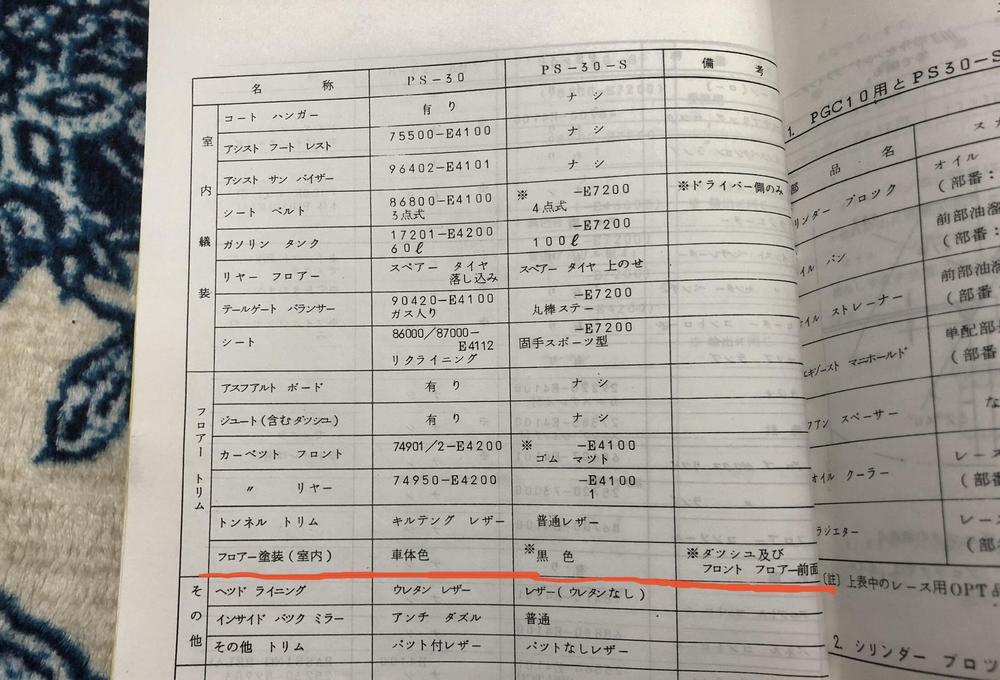 名 称 PS-30 PS-30-S 備 考
室内儀装
コート ハンガー 有り ナシ
アシスト フート レスト 75500-E4100 ナシ
アシスト サン バイザー 96402-E4101 ナシ
シート ベルト 86800-E4100 ※ -E7200 ※ドライバー側のみ
3点式 4点式
ガソリン タンク 17201-E4200 -E7200
60ℓ 100ℓ
リヤー フロアー スペアー タイヤ スペアー タイヤ 上のせ
落し込み
テールゲート バランサー 90420-E4100 -E7200
ガス入り 丸棒ステー
シート 86000/87000- -E7200
E4112 固手スポーツ型
リクライニング
フロアー トリム
アスファルト ボード 有り ナシ
ジュート(含むダッシュ) 有り ナシ
カーペット フロント 74901/2-E4200 ※ -E4100
ゴム マット
〃 リヤー 74950-E4200 -E4100
1
トンネル トリム キルテング レザー 普通レザー
フロアー塗装(室内) 車体色 ※黒 色 ※ダツシユ及び
フロント フロアー前面
その他
ヘッド ライニング ウレタン レザー レザー(ウレタンなし)
インサイド バック ミラー アンチ ダズル 普通
その他 トリム パット付レザー パットなしレザー
1. PGC10用とPS30-S
部 品 名
オイル
(部番:
リンダー ブロック
前部油溜
(部番:
イル パン
前部油溜
(部番
イル ストレーナー
単配部
(部番
エキゾースト マニホールド
な
ファン スペーサー
レース
(部番
オイル クーラー
レー
(部
ラジエター
(註) 上表中のレース用OPT
2. シリンダー ブロッ